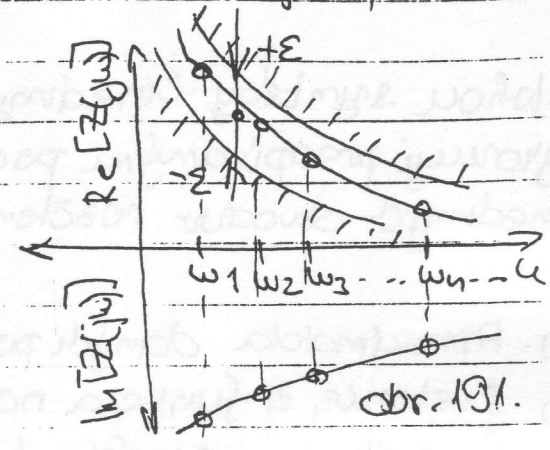 +ε
Re[Z(jω)]
-ε
ω1 ω2 ω3 .. ωn .. ω
Im[Z(jω)]
obr. 191.